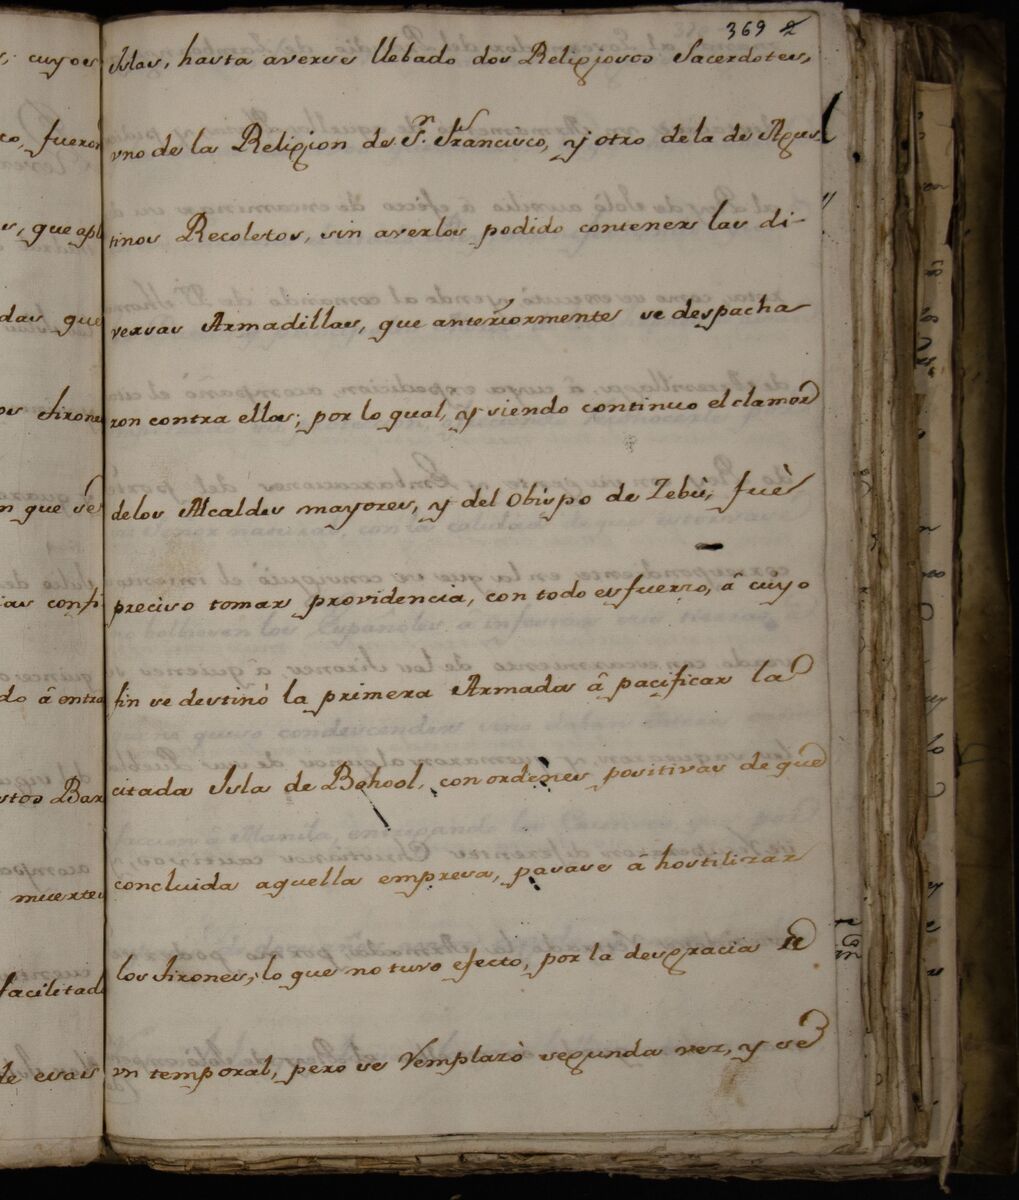 369 2
Yslas, hasta averse llebado dos Religiosos Sacerdotes,
vno de la Religion de Sn. Francisco, y otro dela de Agus
tinos Recoletos, sin averlos podido contener las di-
versas Armadillas, que anteriormente se despacha
ron contra ellos; por lo qual, y siendo continuo el clamor
delos Alcaldes mayores, y del Obispo de Zebù, fuè
preciso tomar providencia, con todo esfuerzo, â cuyo
fin se destinò la primera Armada â pacificar la
citada Isla de Bohool, con ordenes positivas de que
concluida aquella empresa, pasase â hostilizar
los tirones; lo que no tuvo efecto, por la desgracia de
vn temporal, pero se remplazò segunda vez, y se
s, cuyos
co, fueron
s, que apl
das que
os tirones
n que se
ias confi
do â entra
stos Bar
muertes
facilitad
de esas